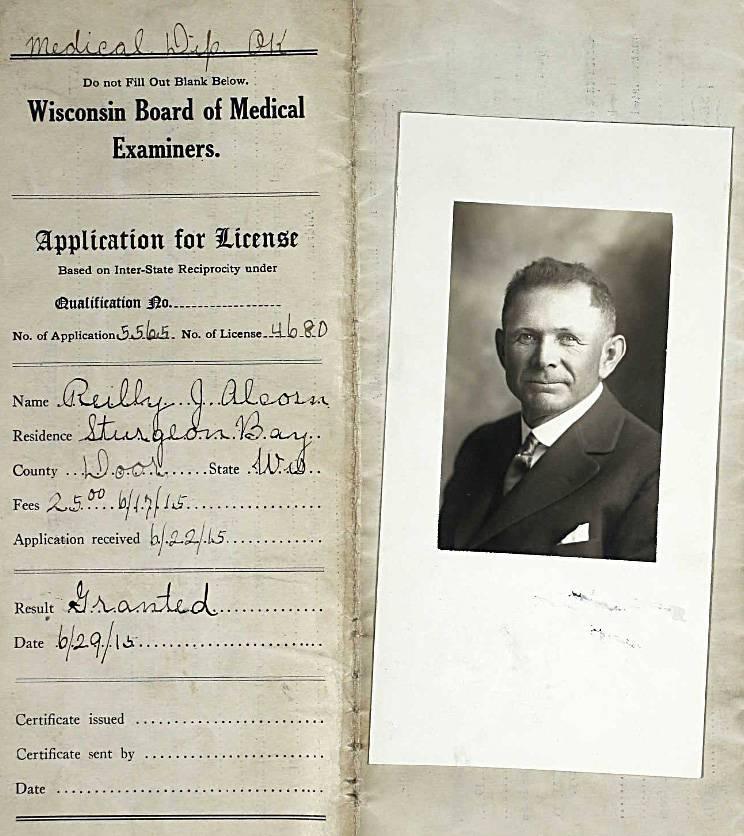 Medical Dip. OK
Do not Fill Out Blank Below.
Wisconsin Board of Medical
Examiners.
Application for License
Based on Inter-State Reciprocity under
Qualification No.
No. of Application 5565 No. of License 4680
Name Reilly J. Alcorn
Residence Sturgeon Bay
County Door State Wis
Fees 25.00 6/17/15
Application received 6/22/15
Result Granted
Date 6/29/15
Certificate issued
Certificate sent by
Date